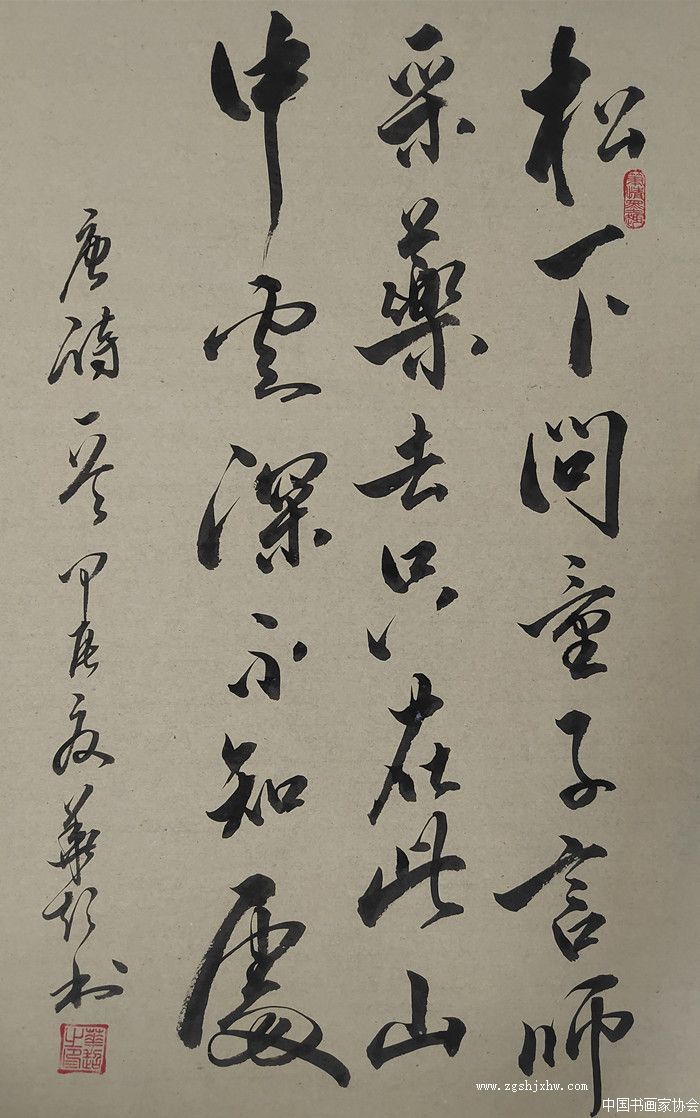 松下问童子言师
采藥去只在此山
中云深不知處
唐诗一首甲辰夏華超书
華超之印
www.zgshjxhw.com
中国书画家协会